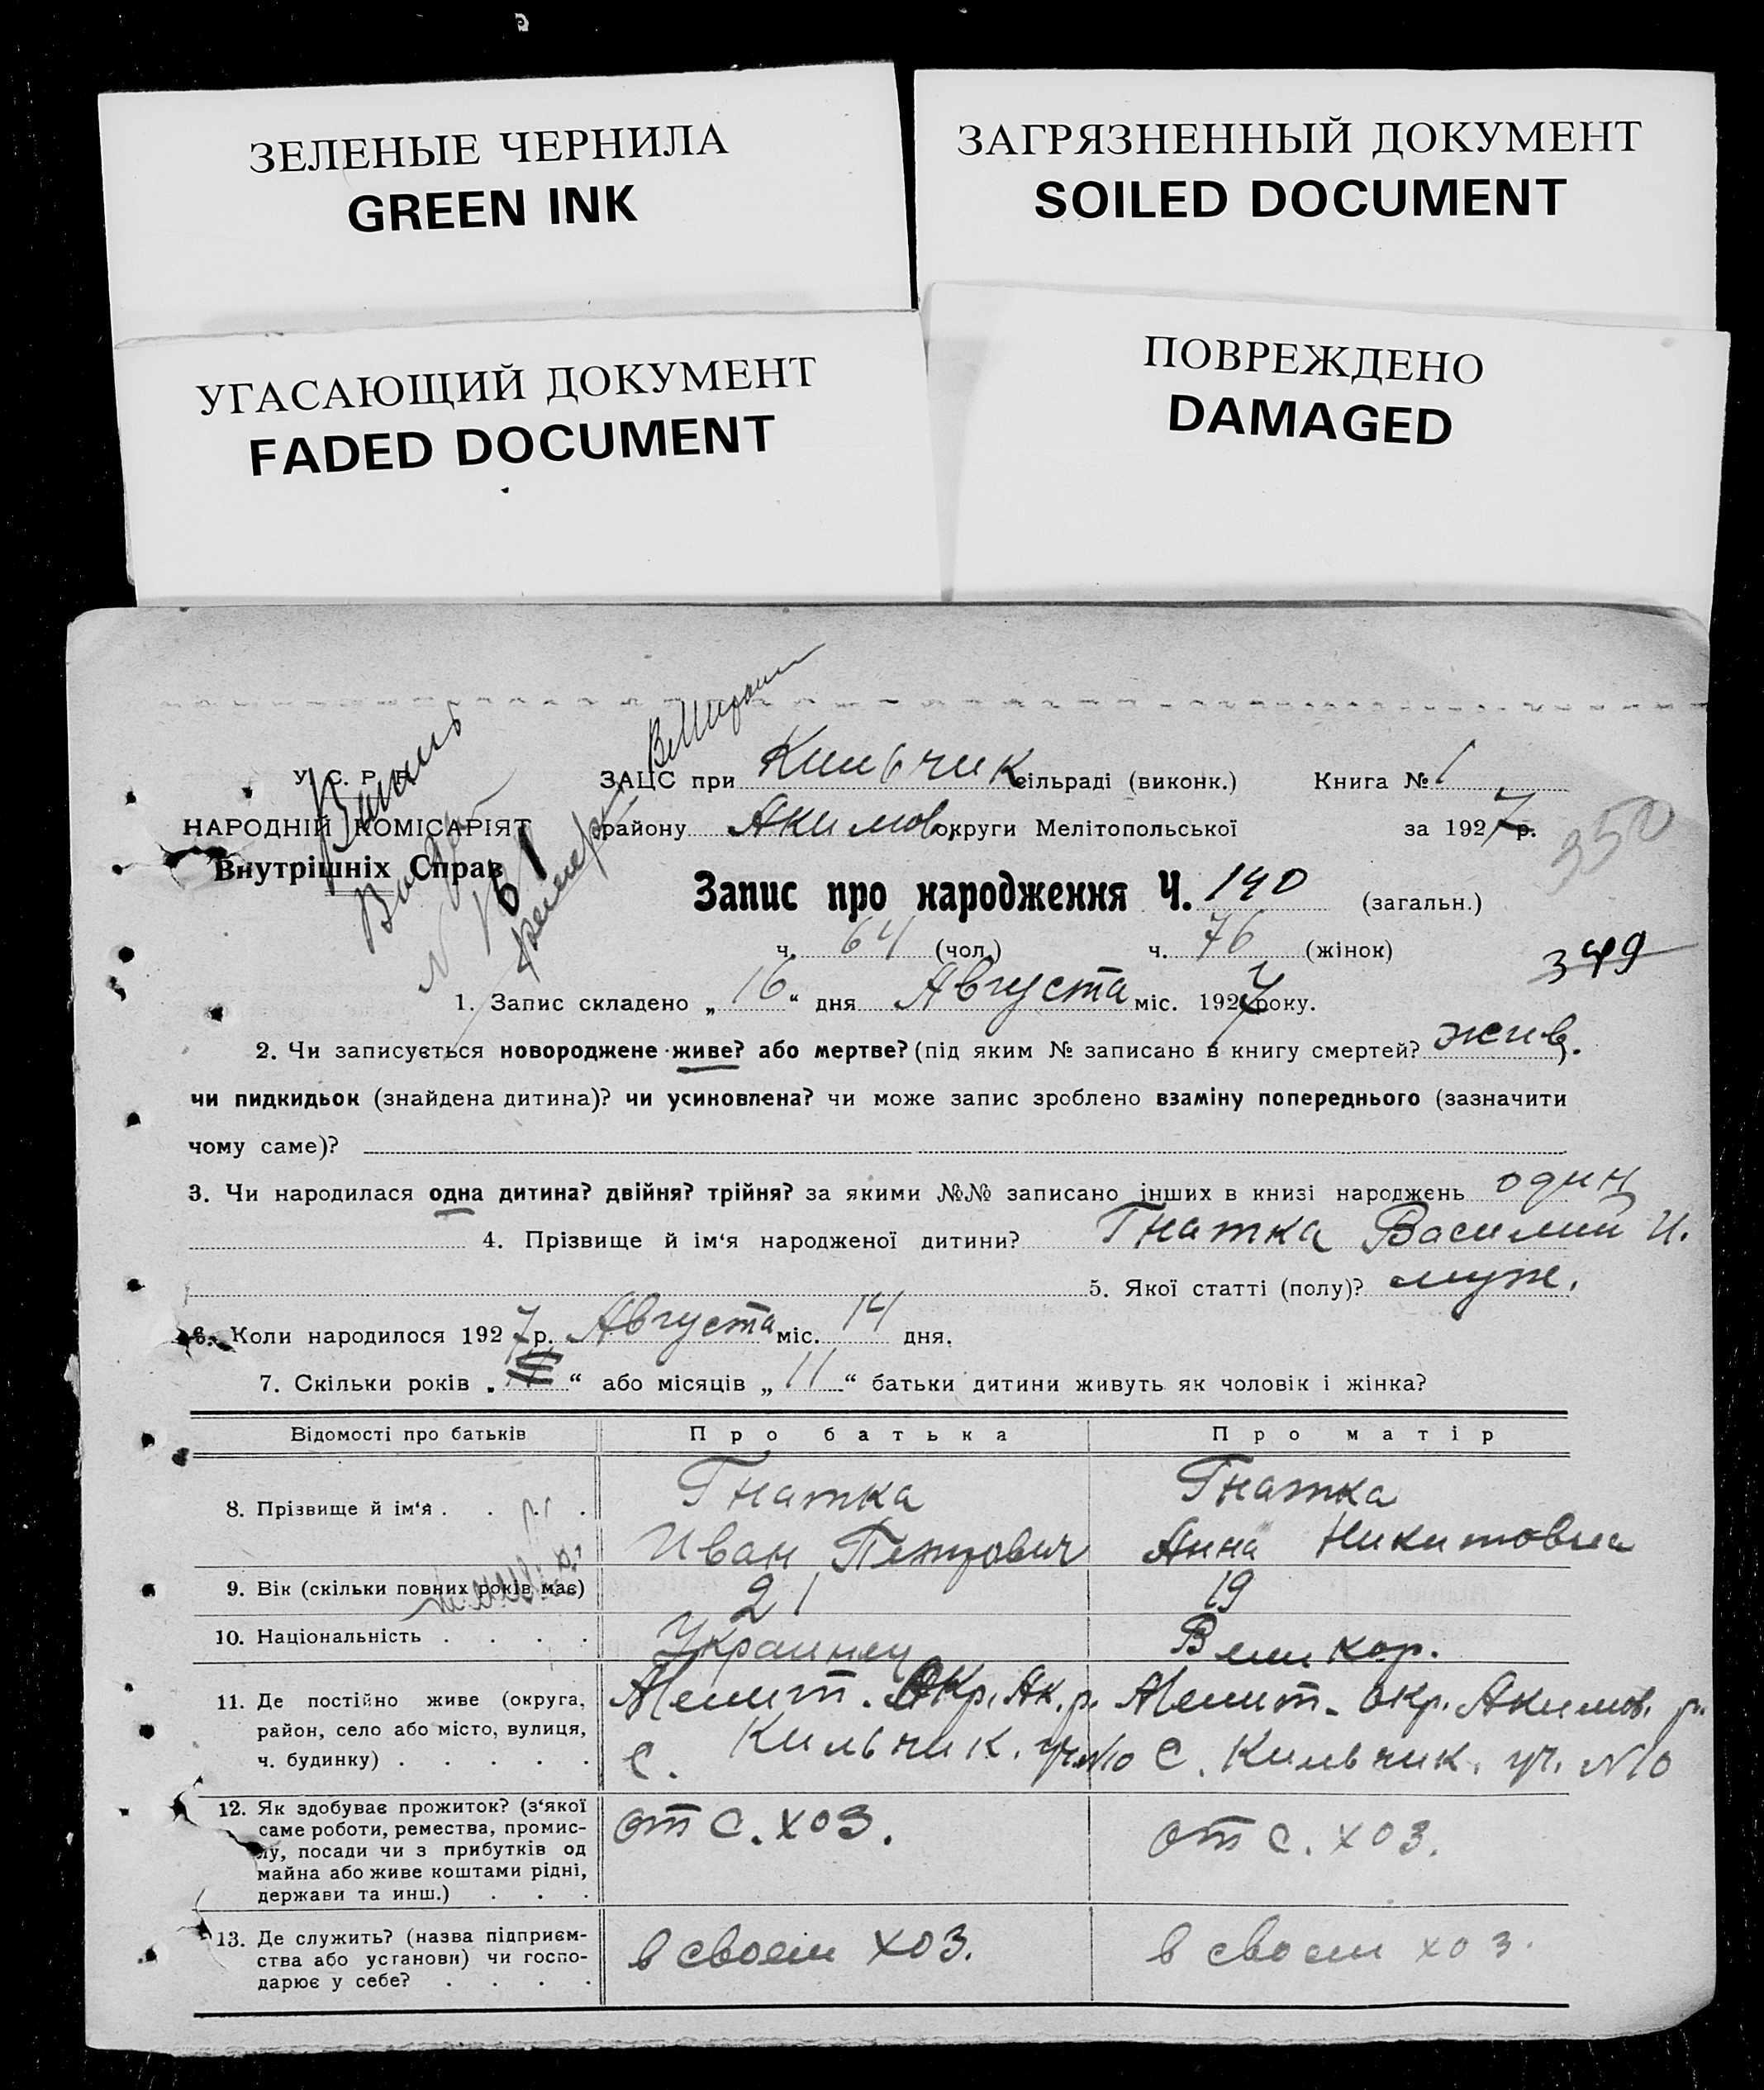 ЗЕЛЕНЫЕ ЧЕРНИЛА
GREEN INK
ЗАГРЯЗНЕННЫЙ ДОКУМЕНТ
SOILED DOCUMENT
УГАСАЮЩИЙ ДОКУМЕНТ
FADED DOCUMENT
ПОВРЕЖДЕНО
DAMAGED
У. С. Р. Р.
НАРОДНІЙ КОМІСАРІЯТ
Внутрішніх Справ
ЗАЦС при Кильчик сільраді (виконк.) Книга № 1
району Акимов. округи Мелітопольської за 1927 р.
350
Запис про народження Ч. 140 (загальн.)
ч. 64 (чол.) ч. 76 (жінок)
349
1. Запис складено „ 16 “ дня Августа міс. 1927 року.
2. Чи записується новороджене живе? або мертве? (під яким № записано в книгу смертей? жив.
чи пидкидьок (знайдена дитина)? чи усиновлена? чи може запис зроблено взаміну попереднього (зазначити
чому саме)?
3. Чи народилася одна дитина? двійня? трійня? за якими №№ записано інших в книзі народжень один
4. Прізвище й ім‘я народженої дитини? Гнатка Василий И.
5. Якої статті (полу)? муж.
6. Коли народилося 1927 р. Августа міс. 14 дня.
7. Скільки років „ “ або місяців „ 11 “ батьки дитини живуть як чоловік і жінка?
Відомості про батьків Про батька Про матір
8. Прізвище й ім‘я . . . . Гнатка Гнатка
Иван Петрович Анна Никитовна
9. Вік (скільки повних років має) 21 19
10. Національність . . . . Украинец Великор.
11. Де постійно живе (округа, Мелит. Окр. Ак. р. Мелит. окр. Акимов. р.
район, село або місто, вулиця,
ч. будинку) . . . . . с. Кильчик. уч. №10 с. Кильчик. уч. №10
12. Як здобуває прожиток? (з‘якої
саме роботи, ремества, промис-
лу, посади чи з прибутків од
майна або живе коштами рідні,
держави та инш.) . . .
от с. хоз. от с. хоз.
13. Де служить? (назва підприєм-
ства або установи) чи госпо-
дарює у себе? . . . .
в своем хоз. в своем хоз.